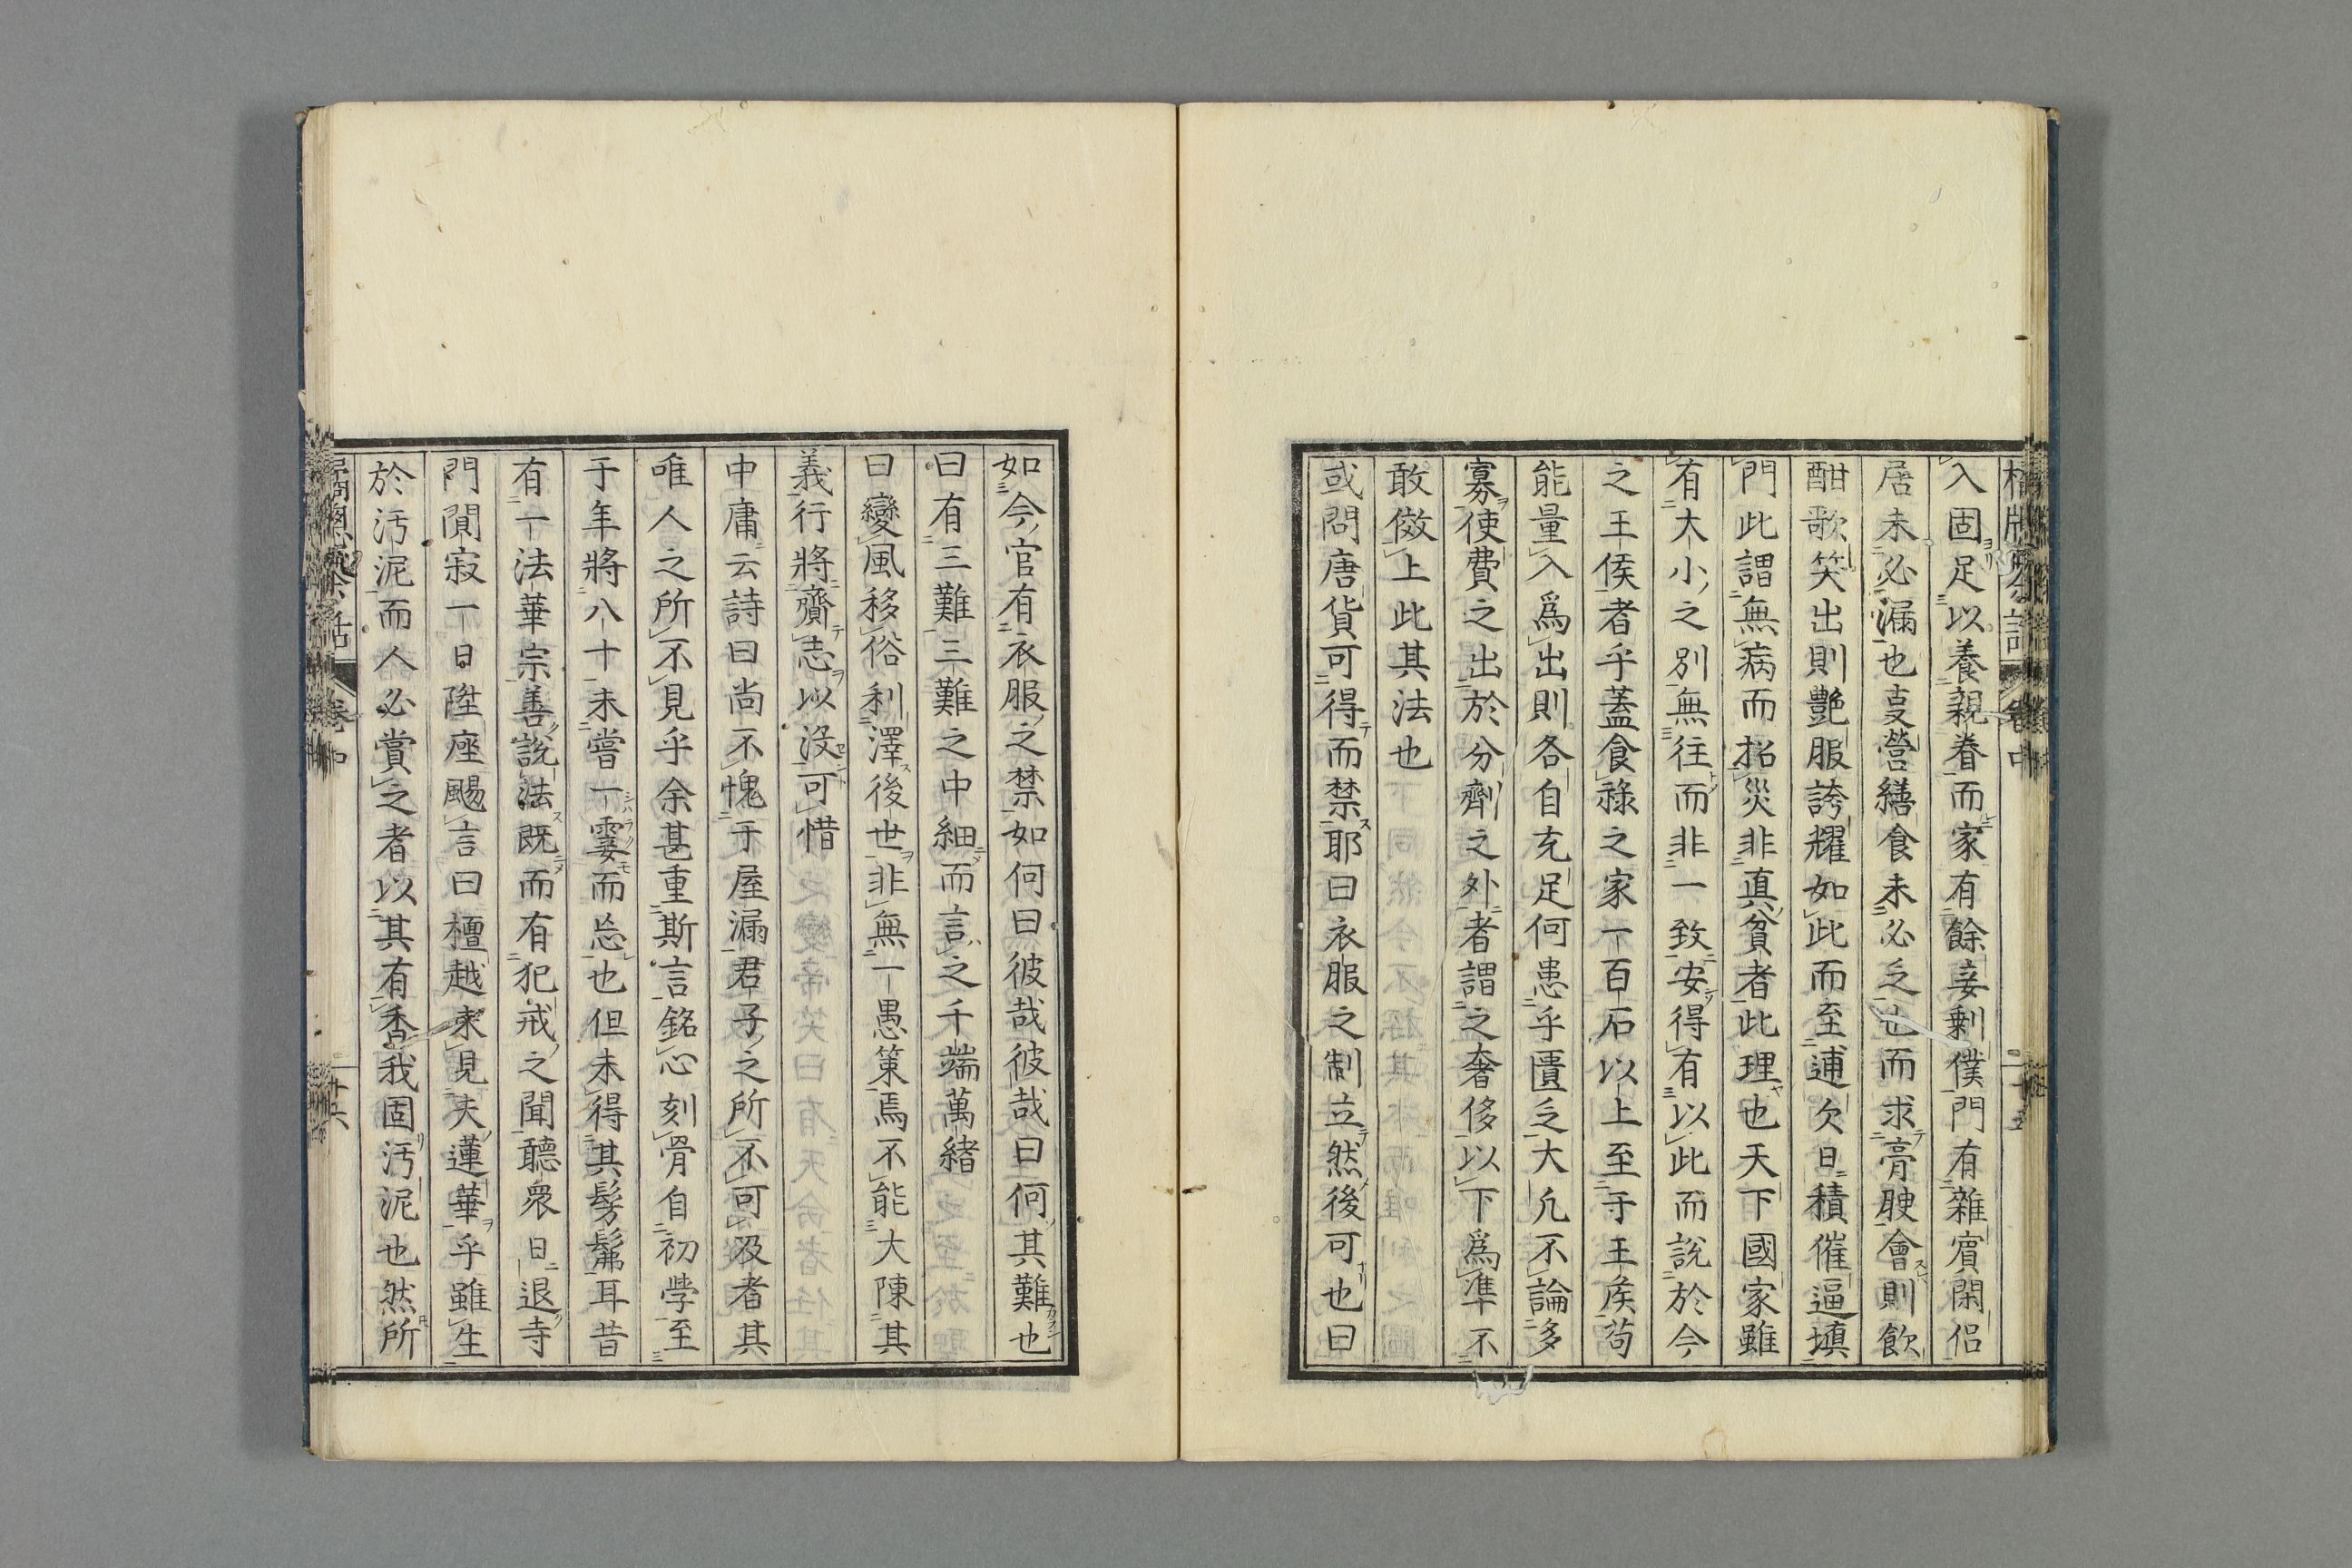 入固足以養親眷而家有餘妾剰僕門有雜賓閑侶
居未必漏也亟營繕食未必乏也而求膏腴會則飲
酣歌笑出則艷服誇耀如此而至逋欠日積催逼塡
門此謂無病而招災非真貧者此理也天下國家雖
有大小之別無往而非一致安得有以此而説於今
之王侯者乎蓋食祿之家一百石以上至于王侯苟
能量入爲出則各自充足何患乎匱乏大凡不論多
寡使費之出於分劑之外者謂之奢侈以下爲準不
敢傚上此其法也
或問唐貨可得而禁耶曰衣服之制立然後可也曰
如今官有衣服之禁如何曰彼哉彼哉曰何其難也
曰有三難三難之中細而言之千端萬緒
曰變風移俗利澤後世非無一愚策焉不能大陳其
義行將齎志以没可惜
中庸云詩曰尚不愧于屋漏君子之所不可及者其
唯人之所不見乎余甚重斯言銘心刻骨自初學至
于年將八十未嘗一霎而忘也但未得其髣髴耳昔
有一法華宗善説法既而有犯戒之聞聽衆日退寺
門閴寂一日陞座颺言曰檀越來見夫蓮華乎雖生
於汚泥而人必賞之者以其有香我固汚泥也然所